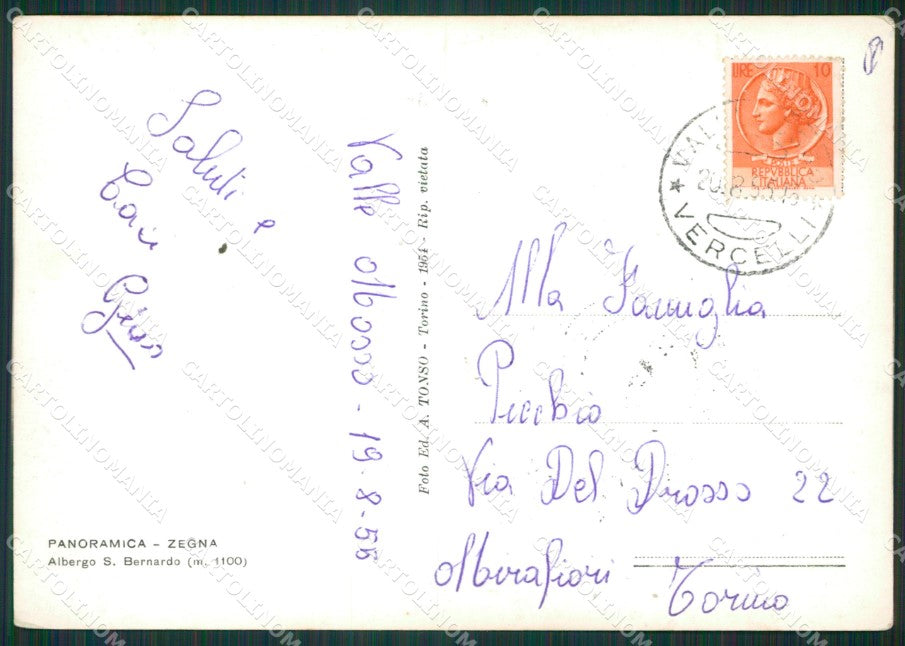 Saluti e
Baci
Valle Mosso - 19-8-55
Foto Ed. A. TONSO - Torino - 1954 - Rip. vietata
LIRE 10
REPVBBLICA
ITALIANA
VERCELLI
Alla Famiglia
Picchio
Via Del Drosso 22
Mirafiori Torino
PANORAMICA - ZEGNA
Albergo S. Bernardo (m. 1100)
CARTOLINOMANIA